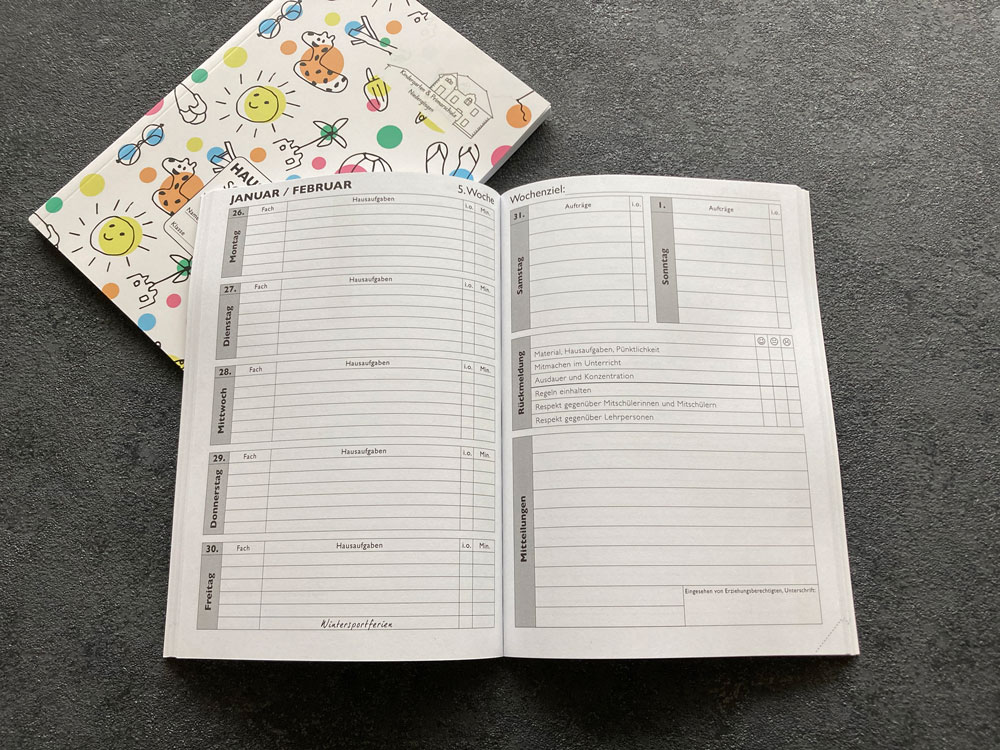 Kindergarten & Primarschule
Niederglatt
HAU
Name
Klasse
JANUAR / FEBRUAR 5. Woche
26. Fach Hausaufgaben i.o. Min.
Montag
27. Fach Hausaufgaben i.o. Min.
Dienstag
28. Fach Hausaufgaben i.o. Min.
Mittwoch
29. Fach Hausaufgaben i.o. Min.
Donnerstag
30. Fach Hausaufgaben i.o. Min.
Freitag
Wintersportferien
Wochenziel:
31. Aufträge i.o.
Samstag
1. Aufträge i.o.
Sonntag
Rückmeldung
Material, Hausaufgaben, Pünktlichkeit
Mitmachen im Unterricht
Ausdauer und Konzentration
Regeln einhalten
Respekt gegenüber Mitschülerinnen und Mitschülern
Respekt gegenüber Lehrpersonen
Mitteilungen
Eingesehen von Erziehungsberechtigten, Unterschrift: